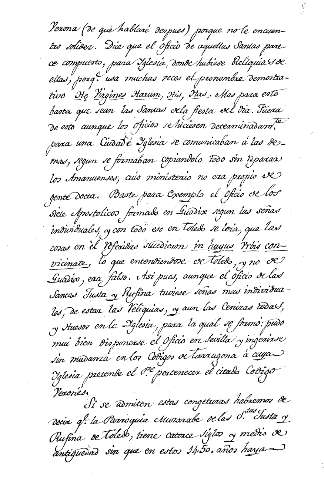 Verona (de que hablaré despues) porque no le encuen-
tro solidez. Dice que el oficio de aquellas Santas pare-
ce compuesto, para Iglesia, donde hubiese Reliquias de
ellas, porq.e usa muchas veces el pronombre demostra-
tivo He Virgines Harum, His, Has. Mas para esto
basta que sean las Santas de la fiesta del dia. Fuera
de esto aunque los oficios se hiciesen determinadam.te
para una Ciudad é Iglesia se comunicaban á las de-
mas, segun se formaban copiandolo todo sin reparar
los Amanuenses, cuio ministerio no era propio de
gente docta. Baste para Exemplo el oficio de los
Siete Apostolicos formado en Guadix segun las señas
individuales, y con todo eso en Toledo se leía, que las
cosas en el referidas sucedieron in hujus Urbis con-
vicinitate, lo que entendiendose de Toledo, y no de
Guadix, era falso. Asi pues, aunque el oficio de las
Santas Justa y Rufina tuviese señas mas individua-
les, de estar las Reliquias, y aun las Cenizas todas,
y Huesos en la Iglesia, para la qual se formó: pudo
mui bien disponerse el oficio en Sevilla, é ingerirse
sin mudanza en los Codigos de Tarragona á cuya
Iglesia pretende el P.e pertenecer el citado Codigo
Veronés.
Si se admiten estas congeturas habremos de
decir q.e la Parroquia Muzarabe de las S.tas Justa y
Rufina de Toledo, tiene catorce siglos y medio de
antiguedad sin que en estos 1450. años haya